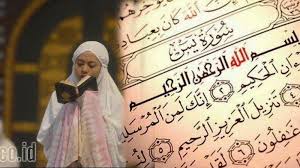 الله كان بعباد
سورة يس
سم الله الرحمن الرحيم
الحكيم ٢ إنك لمن المرسل
تنزيل العزيز الرحيم ٥
غفلون ٦ لقد
co.id